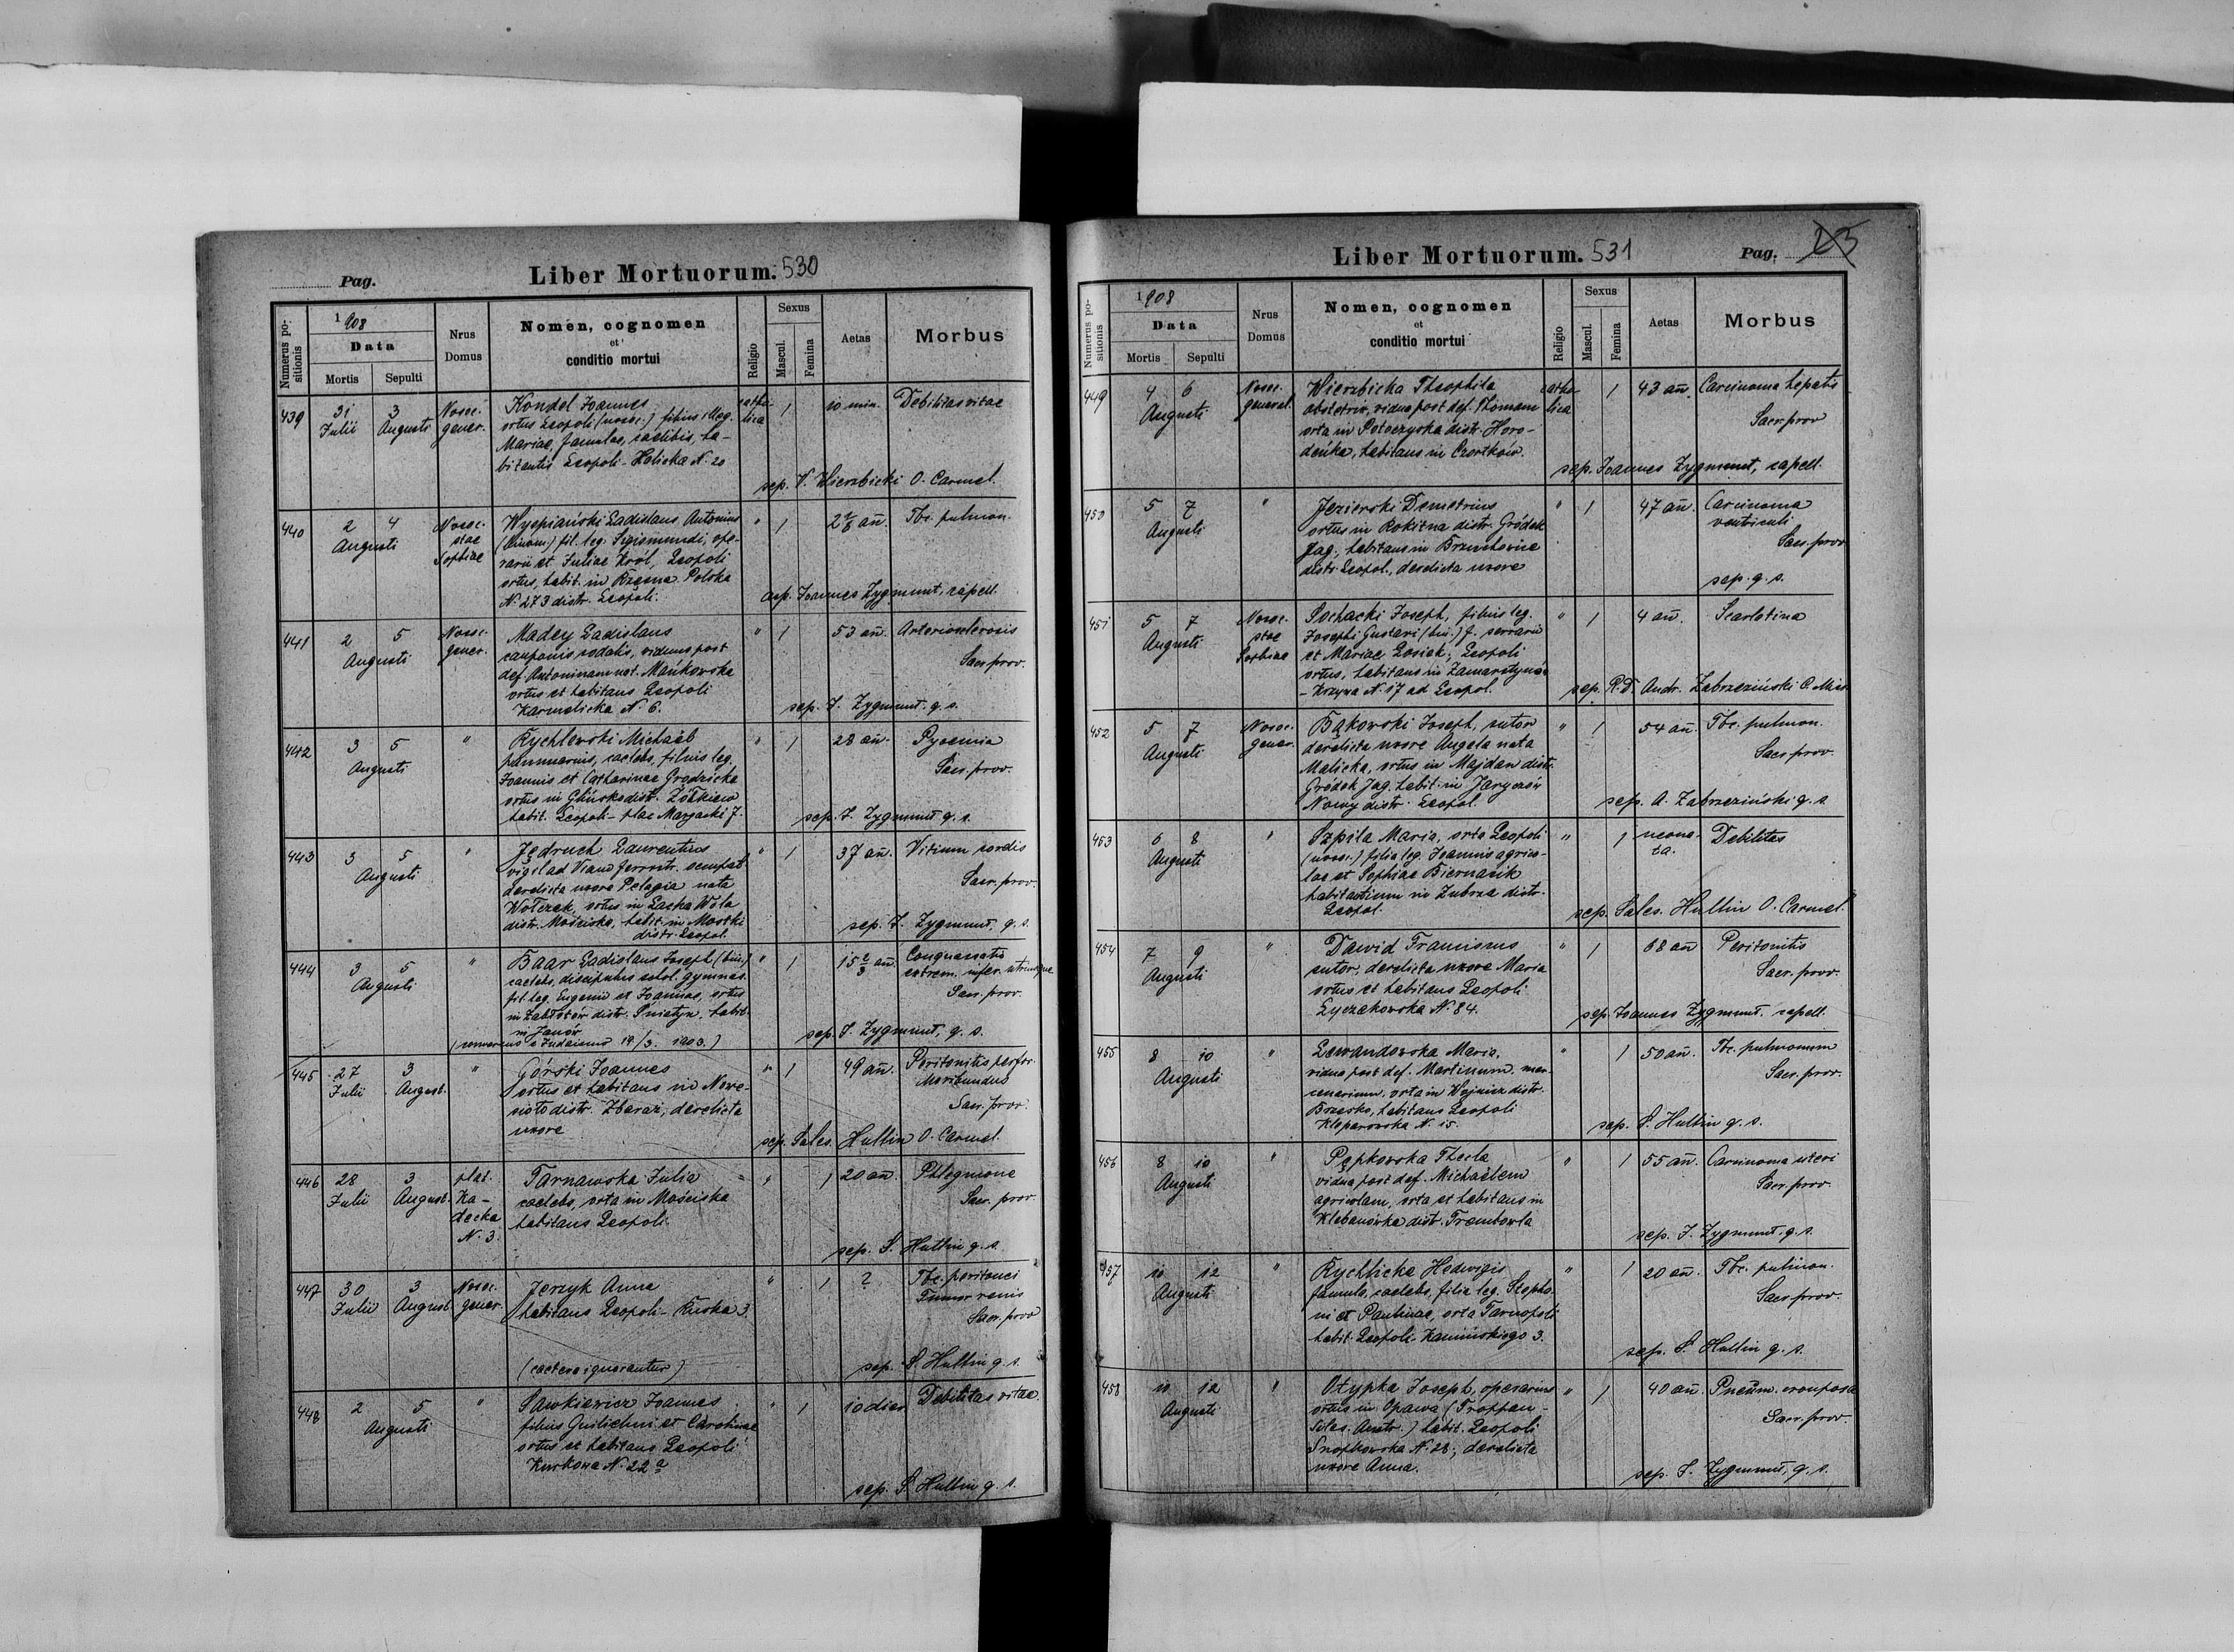 Pag.
Liber Mortuorum. 530
Numerus positionis
1908
Data
Mortis
Sepulti
Nrus Domus
Nomen, cognomen
et
conditio mortui
Religio
Sexus
Mascul.
Femina
Aetas
Morbus
439 31 Julii 3 Augusti Nosoc. gener.
Kondel Joannes
ortus Leopoli (nosoc.) filius illeg.
Mariae, famulae, caelibis, ha-
bitantis Leopoli - Halicka N. 20
catholica 1 10 min. Debilitas vitae
sep. V. Wierzbicki O. Carmel.
440 2 4 Augusti Nosoc. stae Sophiae
Wyspiański Ladislaus Antonius
(binom.) fil. leg. Sigismundi, ope-
rarii et Juliae Król, Leopoli
ortus, habit. in Rzęsna Polska
N. 273 distr. Leopoli.
" 1 2 an̄. Tbc. pulmon.
sep. Joannes Zygmunt, capell.
441 2 5 Augusti Nosoc. gener.
Madey Ladislaus
cauponis sodalis, viduus post
def. Antoninam nat. Mańkowska
ortus et habitans Leopoli
Karmelicka N. 6.
" 1 53 an̄. Arteriosclerosis
Sacr. prov.
sep. J. Zygmunt. q. s.
442 3 5 Augusti "
Rychlewski Michaël
pannuarius, caelebs, filius leg.
Joannis et Catharinae Grodzicka
ortus in Glińsko distr. Żółkiew
habit. Leopoli - plac Maryacki 7.
" 1 28 an̄. Pyaemia
Sacr. prov.
sep. J. Zygmunt q. s.
443 3 5 Augusti "
Jędruch Laurentius
vigil ad Viam ferratr.
derelicta uxore Pelagia nata
Wołczak, ortus in Lacka Wola
distr. Mościska, habit. in Mostki
distr. Leopol.
" 1 37 an̄. Vitium cordis
Sacr. prov.
sep. J. Zygmunt, q. s.
444 3 5 Augusti "
Baar Ladislaus Joseph (bin.)
caelebs, discipulus schol. gymnas.
fil. leg. Eugenii et Joannae, ortus
in Zabłotów distr. Śniatyn, habit.
in Janów
(conversus e Judaismo 14/3. 1903.)
" 1 15 2/3 an̄. Conquassatio
extrem. infer. utriusque
Sacr. prov.
sep. J. Zygmunt, q. s.
445 27 Julii 3 August. "
Górski Joannes
ortus et habitans in Nowe-
siolo distr. Zbaraż, derelicta
uxore
" 1 49 an̄. Peritonitis perfor.
Moribundus
Sacr. prov.
sep. Sales. Hultin O. Carmel.
446 28 Julii 3 August. plac. Ka-
decka
N. 3.
Tarnawska Julia
caelebs, orta in Mościska
habitans Leopoli.
" 1 20 an̄. Phlegmone
Sacr. prov.
sep. S. Hultin q. s.
447 30 Julii 3 August. Nosoc. gener.
Jerzyk Anna
habitans Leopoli - Kurka 3.
(caetera ignorantur)
" 1 ? Tbc. peritonei
Tumor renis
Sacr. prov
sep. S. Hultin q. s.
448 2 5 Augusti "
Sawkiewicz Joannes
filius Guilielmi et Carolinae
ortus et habitans Leopoli
Kurkowa N. 22 a
" 1 10 dies Debilitas vitae
sep. S. Hultin q. s.
Liber Mortuorum. 531
Pag. 23
Numerus positionis
1908
Data
Mortis
Sepulti
Nrus Domus
Nomen, cognomen
et
conditio mortui
Religio
Sexus
Mascul.
Femina
Aetas
Morbus
449 4 6 Augusti Nosoc. general.
Wierzbicka Theophila
obstetrix, vidua post def. Thomam
orta in Potoczyska distr. Horo-
denka, habitans in Czortków.
catholica 1 43 an̄. Carcinoma hepatis
Sacr. prov
sep. Joannes Zygmunt, capell.
450 5 7 Augusti "
Jezierski Demetrius
ortus in Rokitna distr. Gródek
Jag., habitans in Brzuchowice
distr. Leopol., derelicta uxore
" 1 47 an̄. Carcinoma
ventriculi
Sacr. prov
sep. q. s.
451 5 7 Augusti Nosoc. stae Sophiae
Sochacki Joseph, filius leg.
Josephi Gustavi (bin.) f. serrarii
et Mariae Łosiak, Leopoli
ortus, habitans in Zamarstynów
- Krzywa N. 17 ad Leopol.
" 1 4 an̄. Scarlatina
sep. R. D. Andr. Zabrzeziński C. Miss.
452 5 7 Augusti Nosoc. gener.
Bąkowski Joseph, sutor
derelicta uxore Angela nata
Malicka, ortus in Majdan distr.
Gródek Jag. habit. in Jaryczów
Nowy distr. Leopol.
" 1 54 an̄. Tbc. pulmon.
Sacr. prov.
sep. A. Zabrzeziński q. s.
453 6 8 Augusti "
Szpila Maria, orta Leopoli
(nosoc.) filia leg. Joannis agrico-
lae et Sophiae Biernacik
habitantium in Zubrza distr.
Leopol.
" 1 neona-
ta. Debilitas
sep. Sales. Hultin O. Carmel.
454 7 9 Augusti "
Dawid Franciscus
sutor, derelicta uxore Maria
ortus et habitans Leopoli
Łyczakowska N. 84.
" 1 68 an̄ Peritonitis
Sacr. prov.
sep. Joannes Zygmunt. capell.
455 8 10 Augusti "
Lewandowska Maria,
vidua post def. Martinum, mer-
cenarium, orta in Wojnicz distr.
Brzesko, habitans Leopoli
Kleparowska N. 15.
" 1 50 an̄. Tbc. pulmonum
Sacr. prov.
sep. S. Hultin q. s.
456 8 10 Augusti "
Pępkowska Thecla
vidua post def. Michaëlem
agricolam, orta et habitans in
Klebanówka distr. Trembowla
" 1 55 an̄. Carcinoma uteri
Sacr. prov.
sep. J. Zygmunt. q. s.
457 10 12 Augusti "
Rychlicka Hedwigis
famula, caelebs, filia leg. Stepha-
ni et Paulinae, orta Tarnopoli
habit. Leopoli. Kamińskiego 3.
" 1 20 an̄. Tbc. pulmon.
Sacr. prov.
sep. S. Hultin q. s.
458 10 12 Augusti "
Otypka Joseph, operarius
ortus in Opawa (Troppau -
Siles. Austr.) habit. Leopoli
Snopkowska N. 28; derelicta
uxore Anna.
" 1 40 an̄. Pneum. crouposa
Sacr. prov.
sep. J. Zygmunt, q. s.